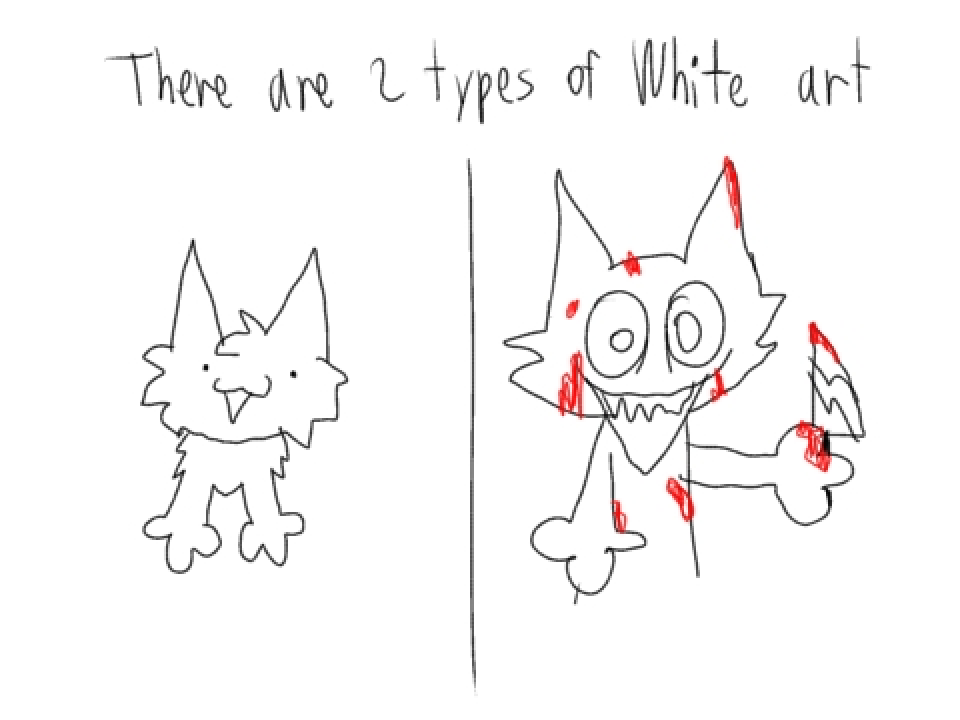 There are 2 types of White art